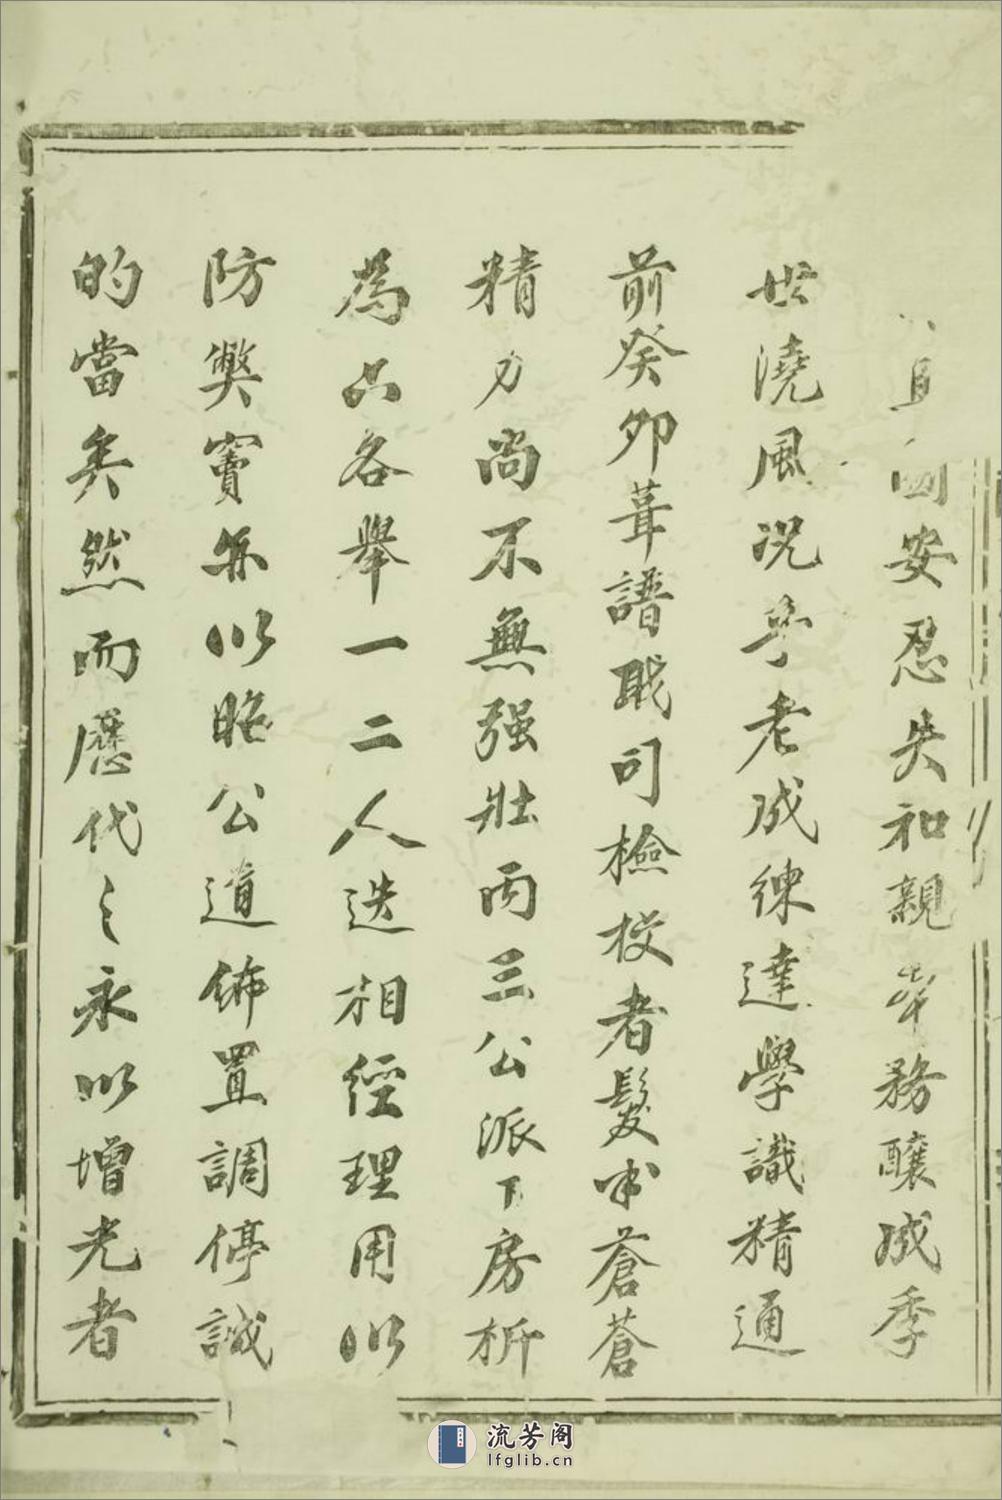 安忍失和親幸務釀成季
世澆風況乎老成練達學識精通
前癸卯葺譜戢司檢校者髮半蒼蒼
精力尚不無強壯丙三公派下房析
為六各舉一二人迭相經理用以
防獘竇亦以昭公道佈置調停誠
的當矣然而歷代之永以增光者
流芳阁
lfglib.cn